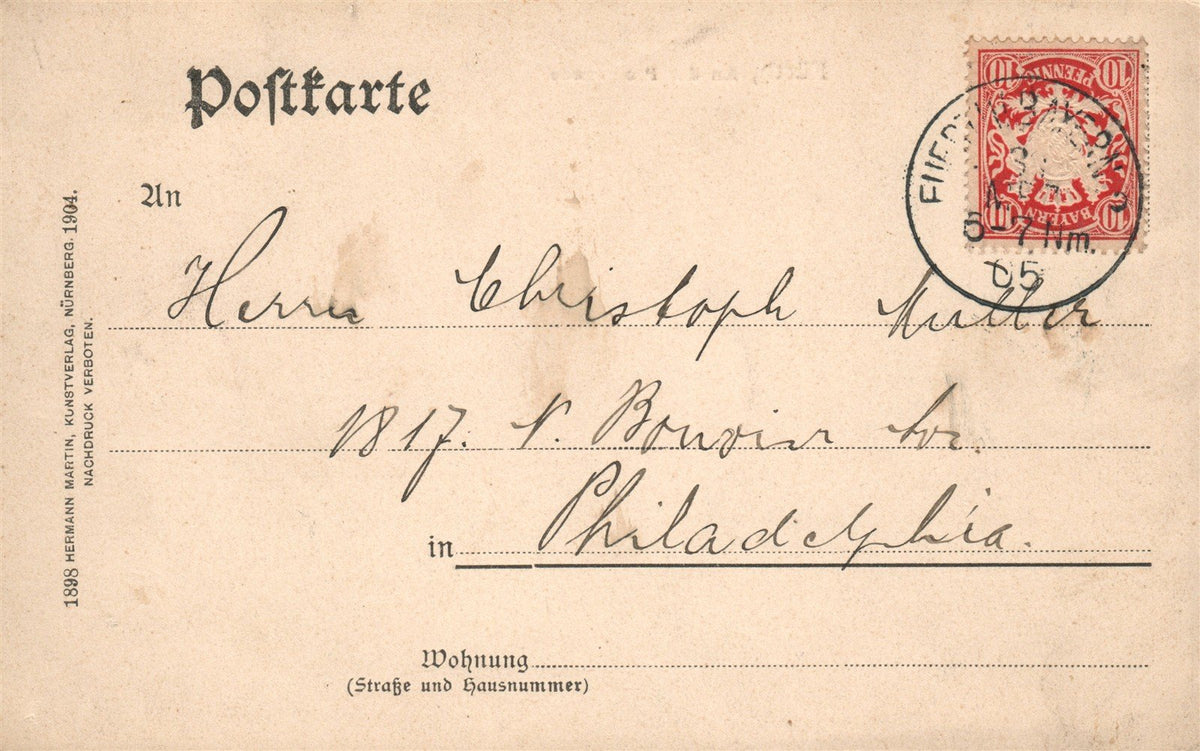 Postkarte
10 PFENNIG 10
10 BAYERN 10
BAYERN
6-7 Nm.
05
An
Herrn Christoph Muller
1817. N. Bouvier
in Philadelphia.
Wohnung
(Straße und Hausnummer)
1898 HERMANN MARTIN, KUNSTVERLAG, NÜRNBERG. 1904.
NACHDRUCK VERBOTEN.